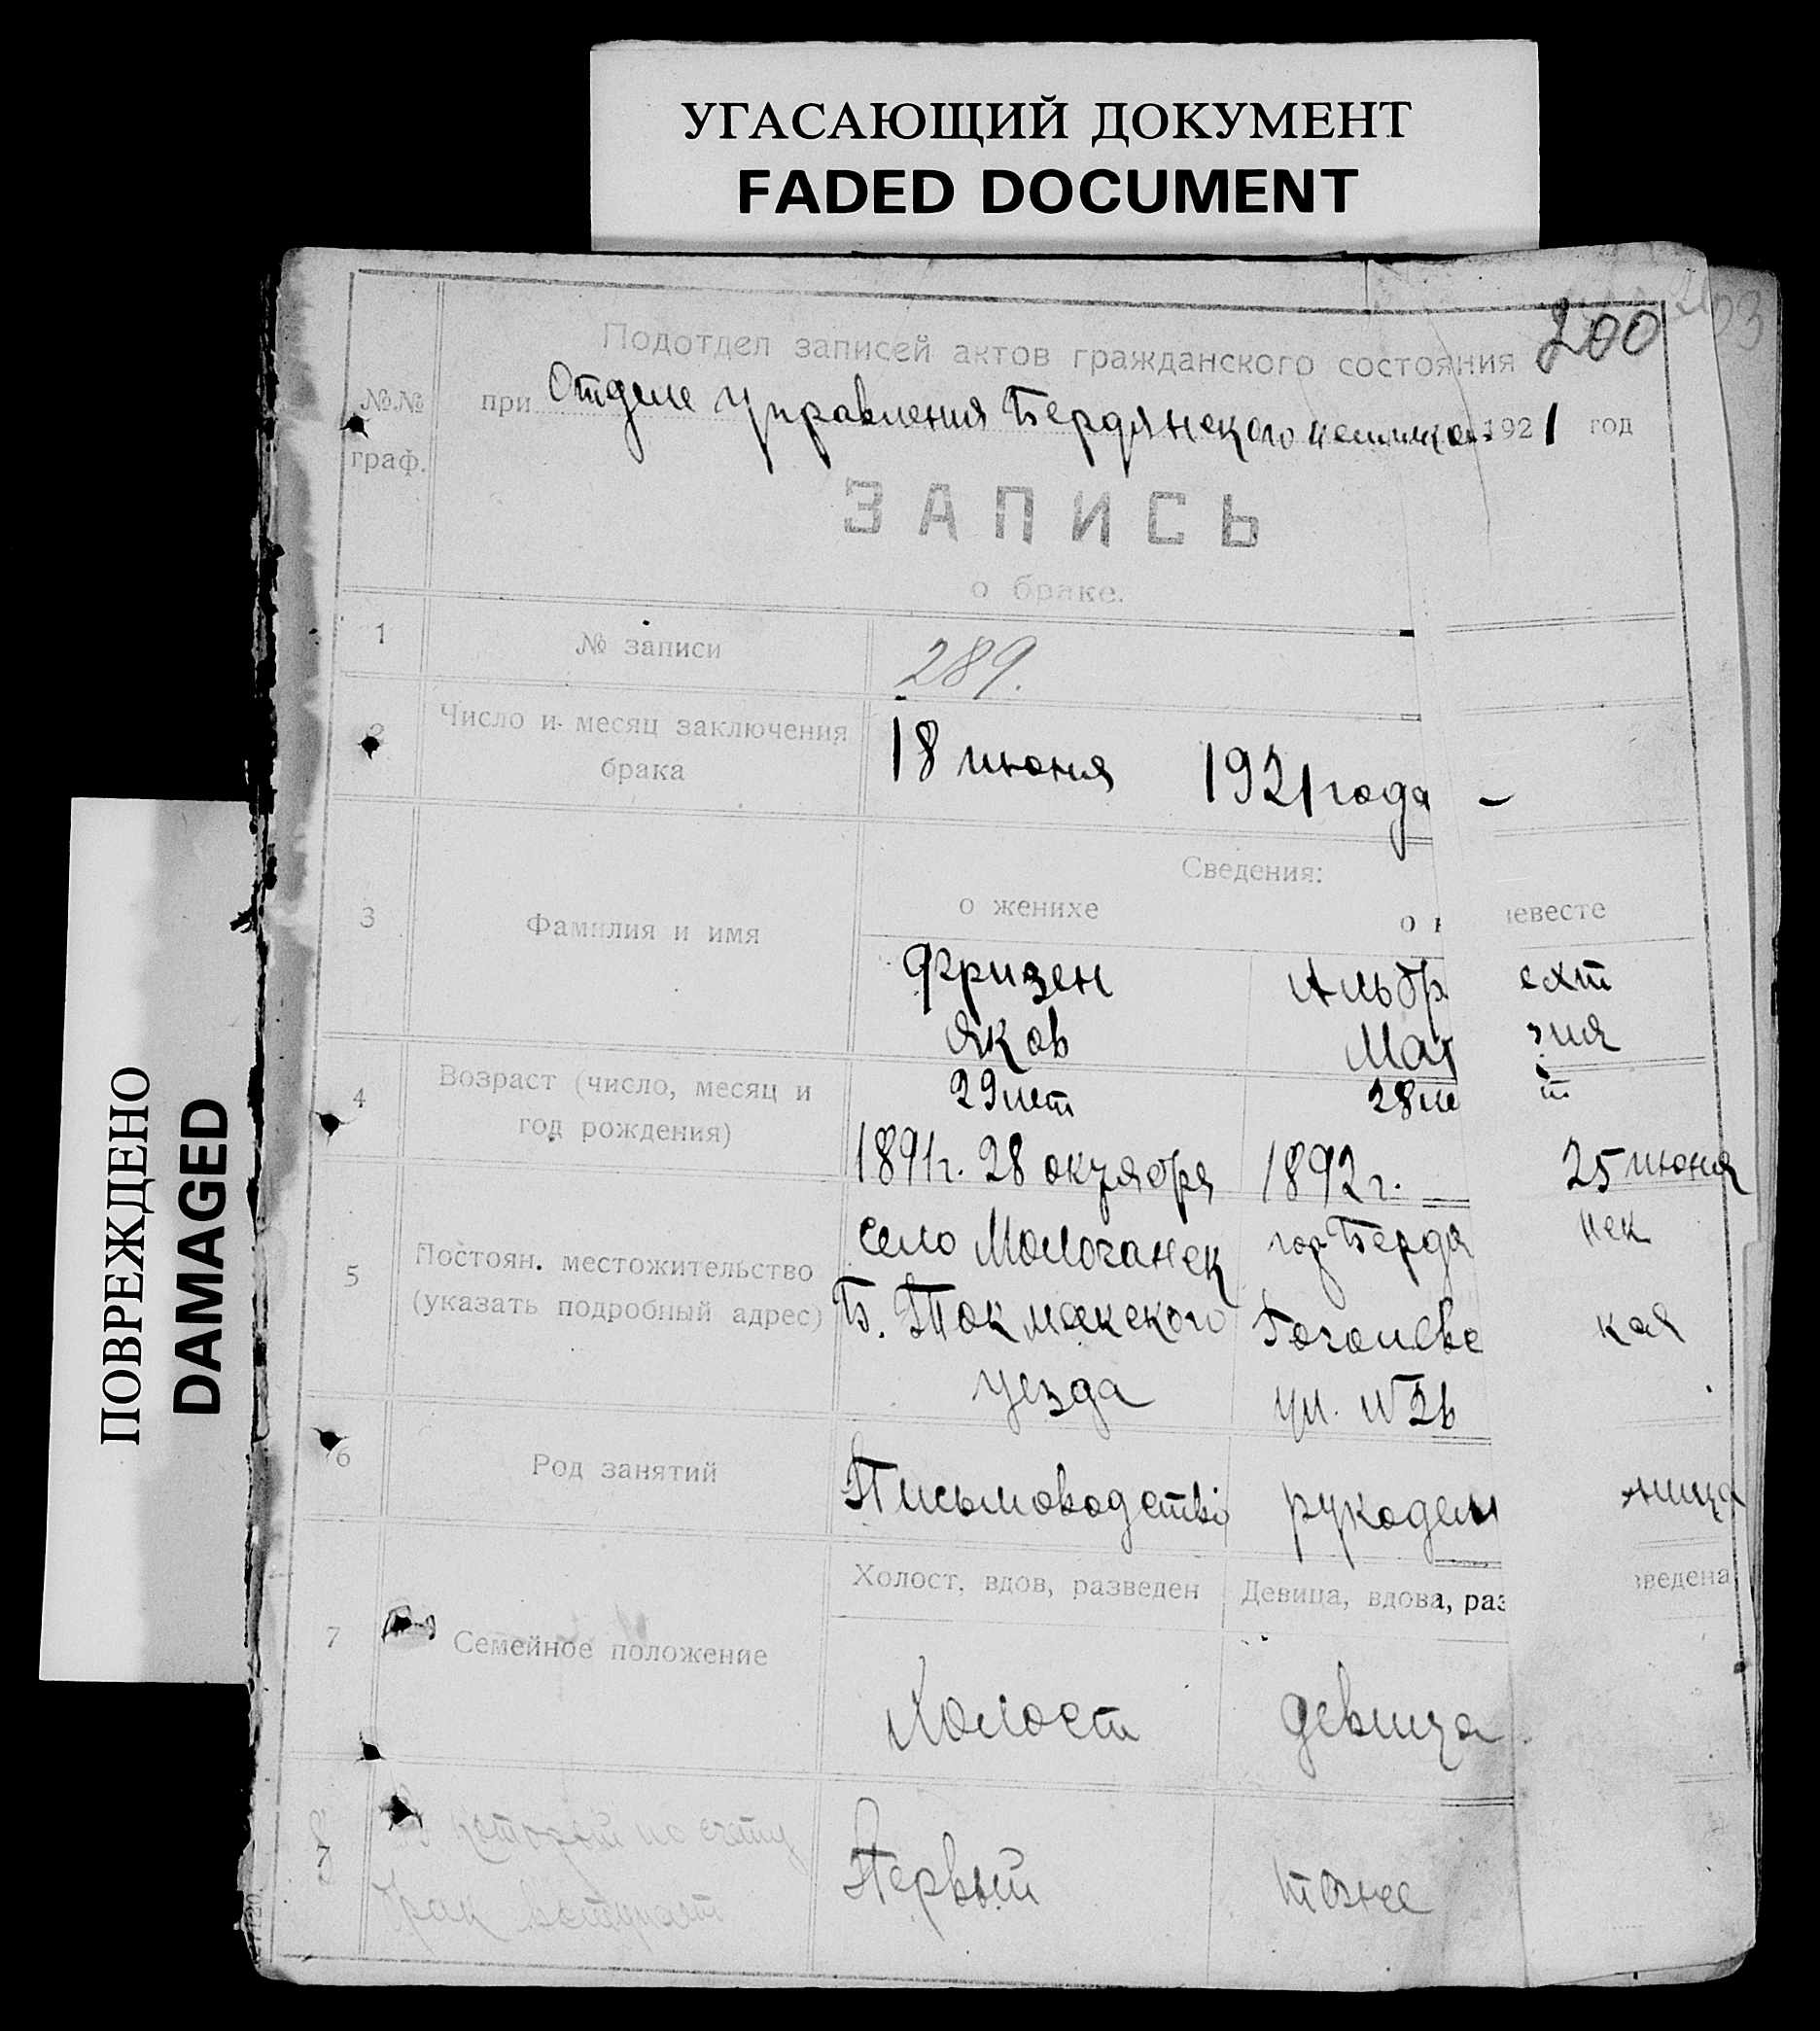 УГАСАЮЩИЙ ДОКУМЕНТ
FADED DOCUMENT
ПОВРЕЖДЕНО
DAMAGED
203
200
Подотдел записей актов гражданского состояния
№№ граф.
при Отделе Управления Бердянского 1921 год
ЗАПИСЬ
о браке.
1 № записи 289.
2 Число и месяц заключения брака
18 июня 1921 года -
Сведения:
3 Фамилия и имя
о женихе о невесте
Фризен Альбрехт
Яков Мария
4 Возраст (число, месяц и год рождения)
29 лет 28 лет
1891 г. 28 октября 1892 г. 25 июня
5 Постоян. местожительство (указать подробный адрес)
село Молочанск гор Бердянск
Б. Токмакского Гоголевская
уезда ул. №
6 Род занятий
Письмоводство рукодельница
Холост, вдов, разведен Девица, вдова, разведена
7 Семейное положение
Холост девица
8 7 В который по счету
брак вступает
Первый тоже